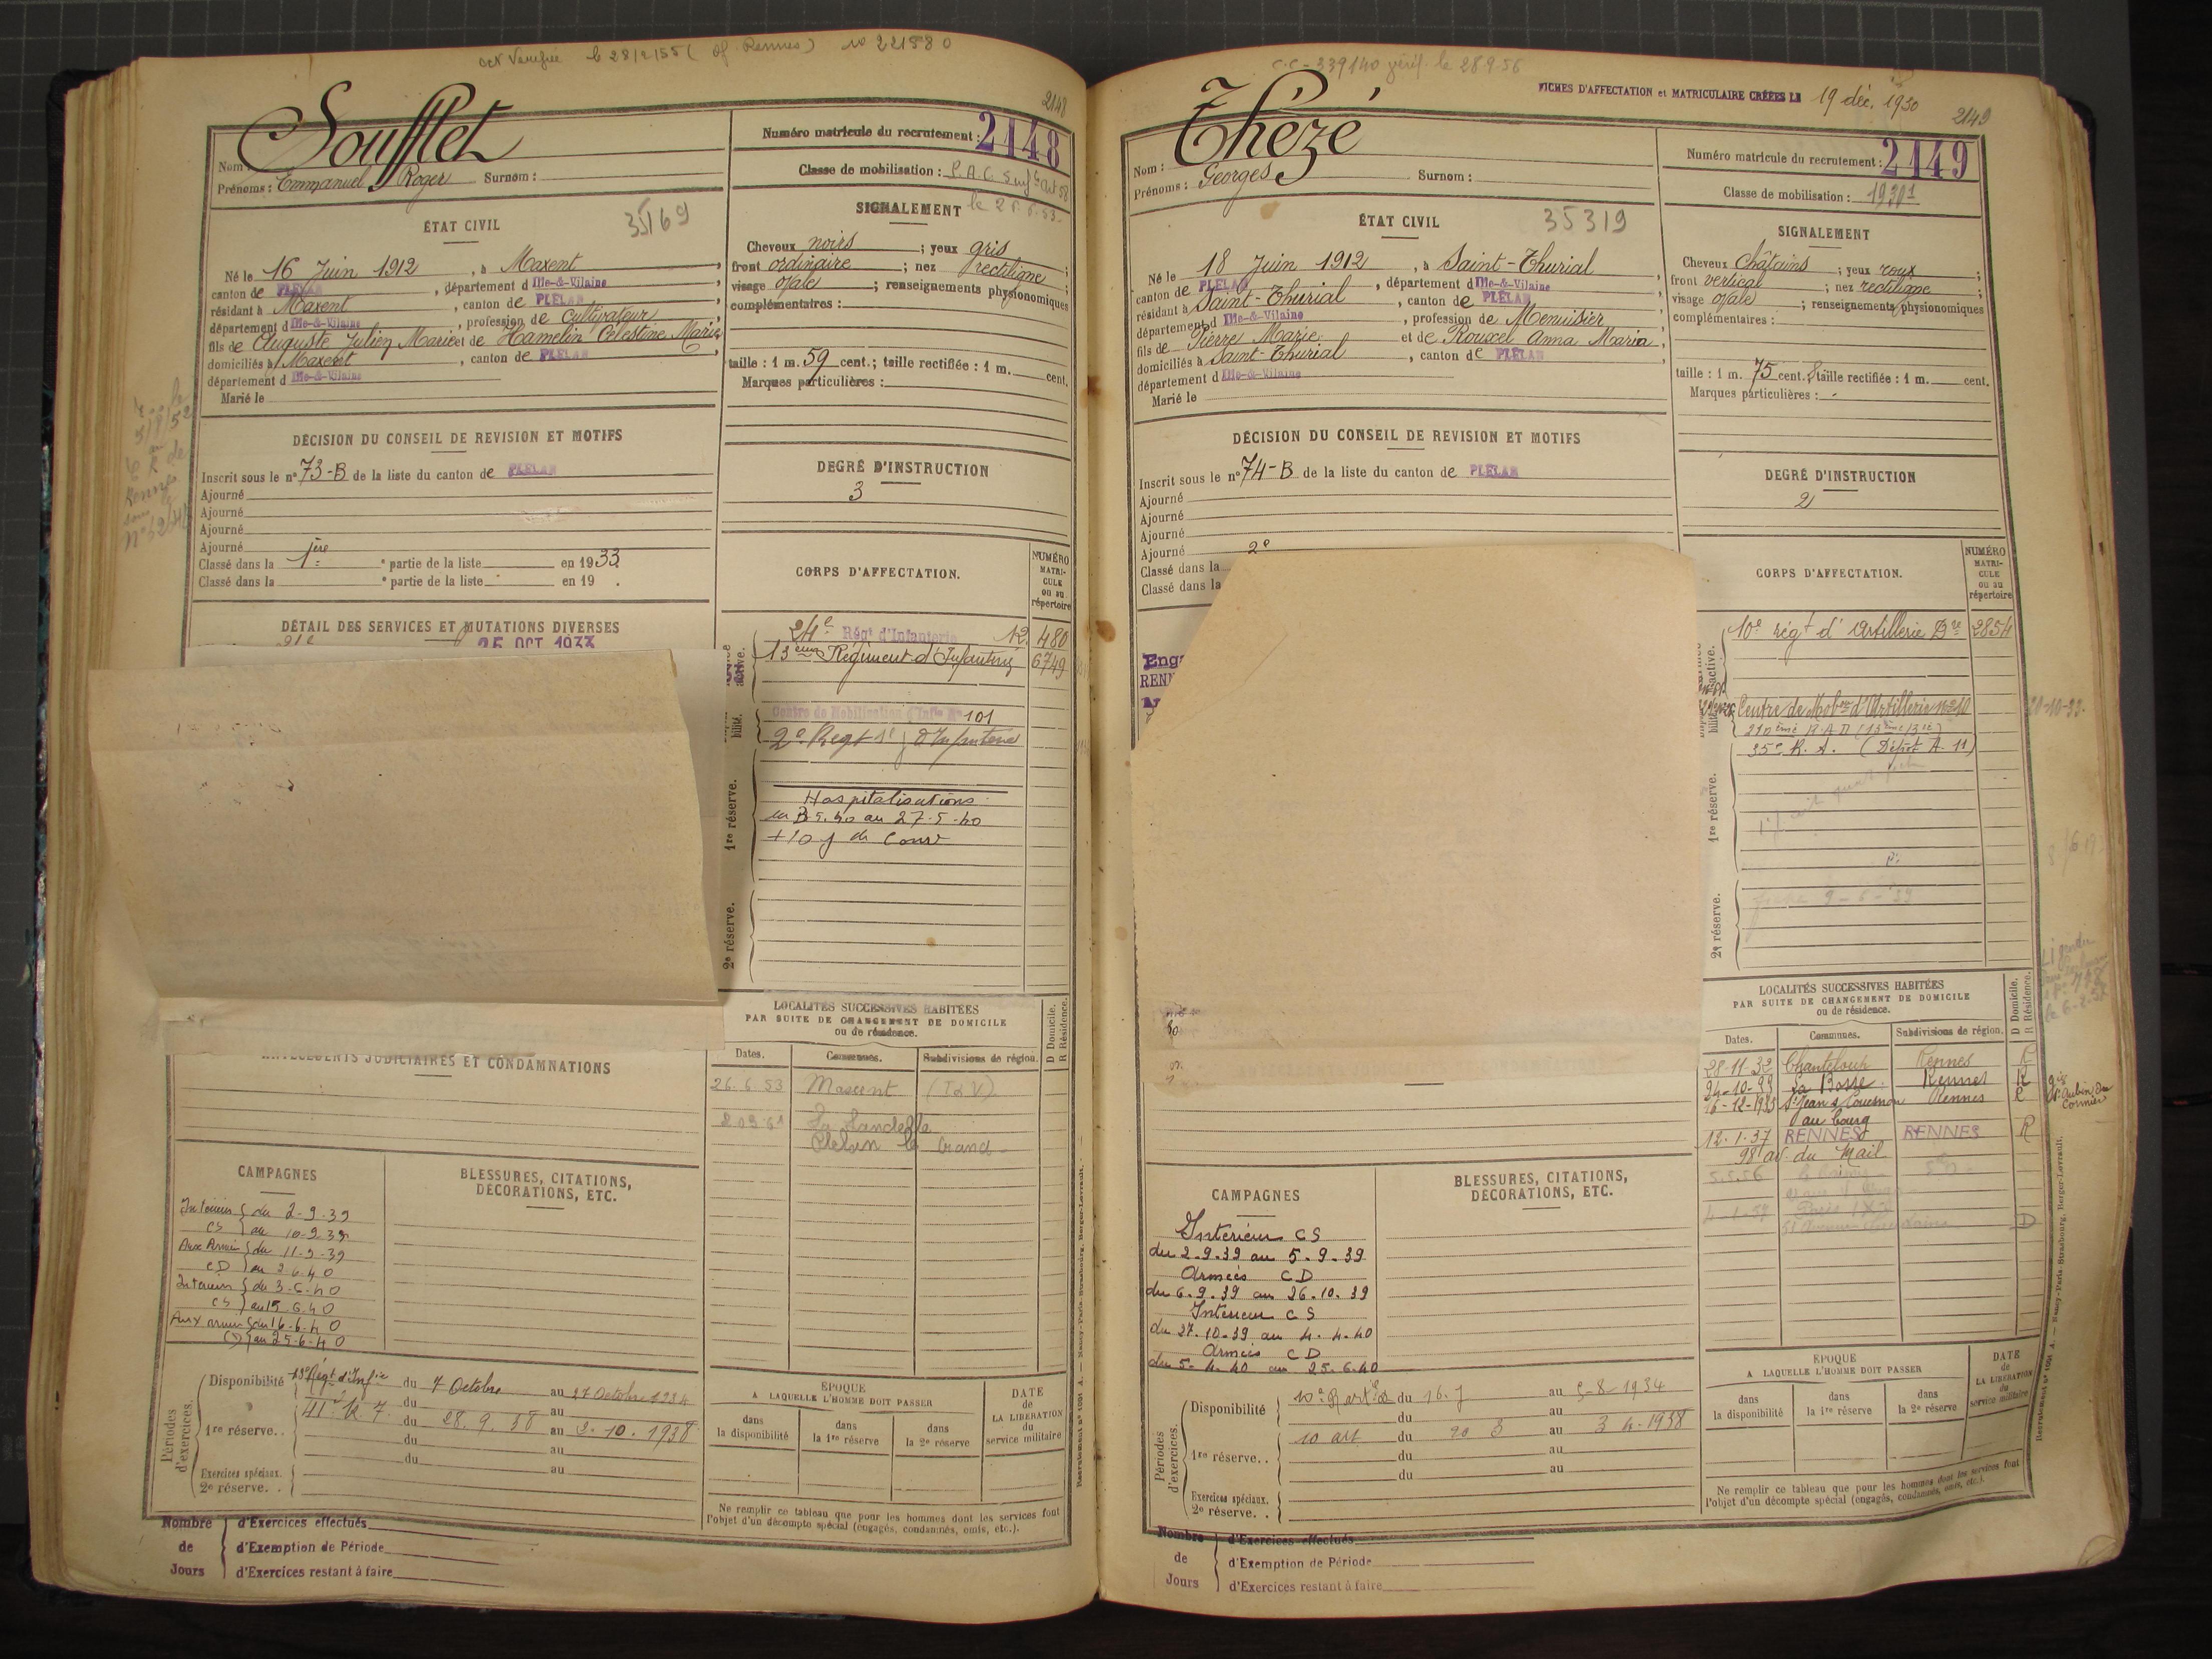 le 28/2/55 ( of. Rennes) no 221580
2148
Soufflet
Nom :
Prénoms : Emmanuel Roger Surnom :
Numéro matricule du recrutement : 2148
Classe de mobilisation :
ÉTAT CIVIL
35169
Né le 16 Juin 1912, à Maxent,
canton de PLÉLAN, département d Ille-&-Vilaine
résidant à Maxent, canton de PLÉLAN,
département d Ille-&-Vilaine, profession de Cultivateur
fils de Auguste Julien Marie et de Hamelin Célestine Marie,
domiciliés à Maxent, canton de PLÉLAN,
département d Ille-&-Vilaine
Marié le
SIGNALEMENT
Cheveux noirs ; yeux gris ;
front ordinaire ; nez rectiligne ;
visage ovale ; renseignements physionomiques
complémentaires :
taille : 1 m. 59 cent.; taille rectifiée : 1 m. cent.
Marques particulières :
DÉCISION DU CONSEIL DE REVISION ET MOTIFS
Inscrit sous le n° 73-B de la liste du canton de PLÉLAN
Ajourné
Ajourné
Ajourné
Ajourné
Classé dans la 1ère partie de la liste en 1933.
Classé dans la e partie de la liste en 19 .
DEGRÉ D'INSTRUCTION
3
DÉTAIL DES SERVICES ET MUTATIONS DIVERSES
25 OCT 1933
CORPS D'AFFECTATION.
NUMÉRO MATRICULE ou au répertoire
24e Régt d'Infanterie 480
13ème Régiment d'Infanterie 6749
Centre de Mobilisation 101
1re réserve.
Hospitalisations
27-5-40
+ 10 j de Conv
2e réserve.
LOCALITÉS SUCCESSIVES HABITÉES
PAR SUITE DE CHANGEMENT DE DOMICILE
ou de résidence.
D Domicile.
R Résidence.
Dates. Communes. Subdivisions de région.
26.6.53 Maxent (I&V)
ANTÉCÉDENTS JUDICIAIRES ET CONDAMNATIONS
CAMPAGNES
Intérieur du 2-9-39
CS au 10-9-39
Aux Armées du 11-9-39
CD au 2-6-40
Intérieur du 3-6-40
CS au 15-6-40
Aux armées du 16-6-40
au 25-6-40
BLESSURES, CITATIONS,
DÉCORATIONS, ETC.
Périodes d'exercices.
Disponibilité 13e Régt d'Infie du 7 Octobre au 27 Octobre 1934
du au
1re réserve. du 28.9.38 au 2.10.1938
du au
du au
Exercices spéciaux.
2e réserve.
ÉPOQUE
A LAQUELLE L'HOMME DOIT PASSER
dans la disponibilité
dans la 1re réserve
dans la 2e réserve
DATE de LA LIBÉRATION du service militaire
Ne remplir ce tableau que pour les hommes dont les services font
l'objet d'un décompte spécial (engagés, condamnés, omis, etc.).
Nombre de Jours
d'Exercices effectués
d'Exemption de Période
d'Exercices restant à faire
C.C - 339140 vérif. le 28 9 56
FICHES D'AFFECTATION et MATRICULAIRE CRÉÉES LE 19 déc. 1930
2149
Thézé
Nom :
Prénoms : Georges Surnom :
Numéro matricule du recrutement : 2149
Classe de mobilisation :
ÉTAT CIVIL
35319
Né le 18 Juin 1912, à Saint-Thurial,
canton de PLÉLAN, département d Ille-&-Vilaine
résidant à Saint-Thurial, canton de PLÉLAN
département d Ille-&-Vilaine, profession de Menuisier
fils de Pierre Marie et de Rouxel Anna Maria,
domiciliés à Saint-Thurial, canton de PLÉLAN
département d Ille-&-Vilaine
Marié le
SIGNALEMENT
Cheveux châtains ; yeux roux ;
front vertical ; nez rectiligne ;
visage ovale ; renseignements physionomiques
complémentaires :
taille : 1 m. 75 cent.; taille rectifiée : 1 m. cent.
Marques particulières :
DÉCISION DU CONSEIL DE REVISION ET MOTIFS
Inscrit sous le n° 74-B de la liste du canton de PLÉLAN
Ajourné
Ajourné
Ajourné
Ajourné
Classé dans la 2e
Classé dans la
DEGRÉ D'INSTRUCTION
2
CORPS D'AFFECTATION.
NUMÉRO MATRICULE ou au répertoire
10e régt d'Artillerie Dre 2854
Centre de Mobon d'Artillerie n° 10
35e R. A. (Dépôt A. 11)
1re réserve.
2e réserve.
LOCALITÉS SUCCESSIVES HABITÉES
PAR SUITE DE CHANGEMENT DE DOMICILE
ou de résidence.
D Domicile.
R Résidence.
Dates. Communes. Subdivisions de région.
28-11-32 Chanteloup Rennes R
24-10-33 La Bosse Rennes R
16-12-1933 St Jean s/ Couesnon Rennes R
au bourg
12.1.37 RENNES RENNES R
98 av du Mail
5.5.56
D
CAMPAGNES
Intérieur CS
du 2-9-39 au 5-9-39
Armées CD
du 6-9-39 au 26-10-39
Intérieur CS
du 27-10-39 au 4-4-40
Armées CD
du 5-4-40 au 25-6-40
BLESSURES, CITATIONS,
DÉCORATIONS, ETC.
Périodes d'exercices.
Disponibilité du 16.7 au 5-8-1934
du au
1re réserve. 10 art du au 3 4-1938
du au
du au
Exercices spéciaux.
2e réserve.
ÉPOQUE
A LAQUELLE L'HOMME DOIT PASSER
dans la disponibilité
dans la 1re réserve
dans la 2e réserve
DATE de LA LIBÉRATION du service militaire
Ne remplir ce tableau que pour les hommes dont les services font
l'objet d'un décompte spécial (engagés, condamnés, omis, etc.).
Nombre de Jours
d'Exercices effectués
d'Exemption de Période
d'Exercices restant à faire